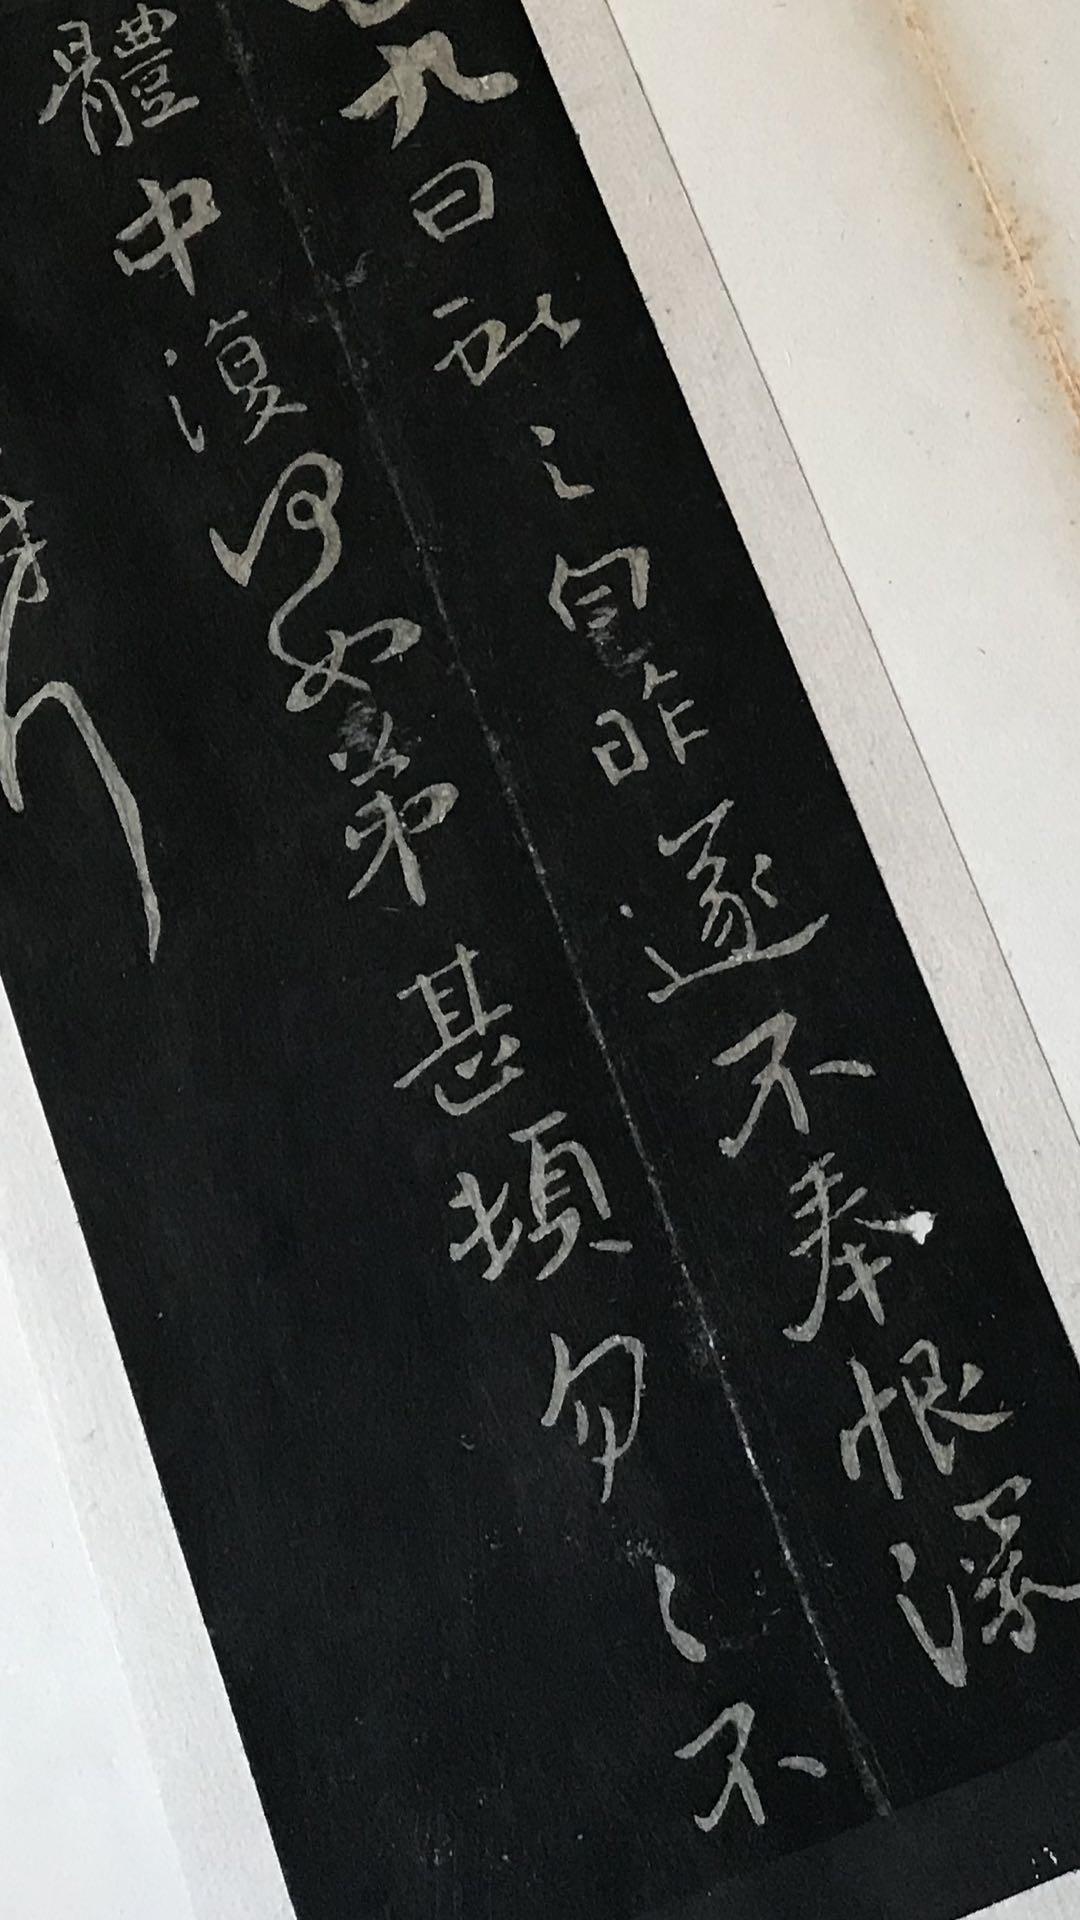 九日獻之白昨遂不奉恨深
體中復何如弟甚頓勿〻不